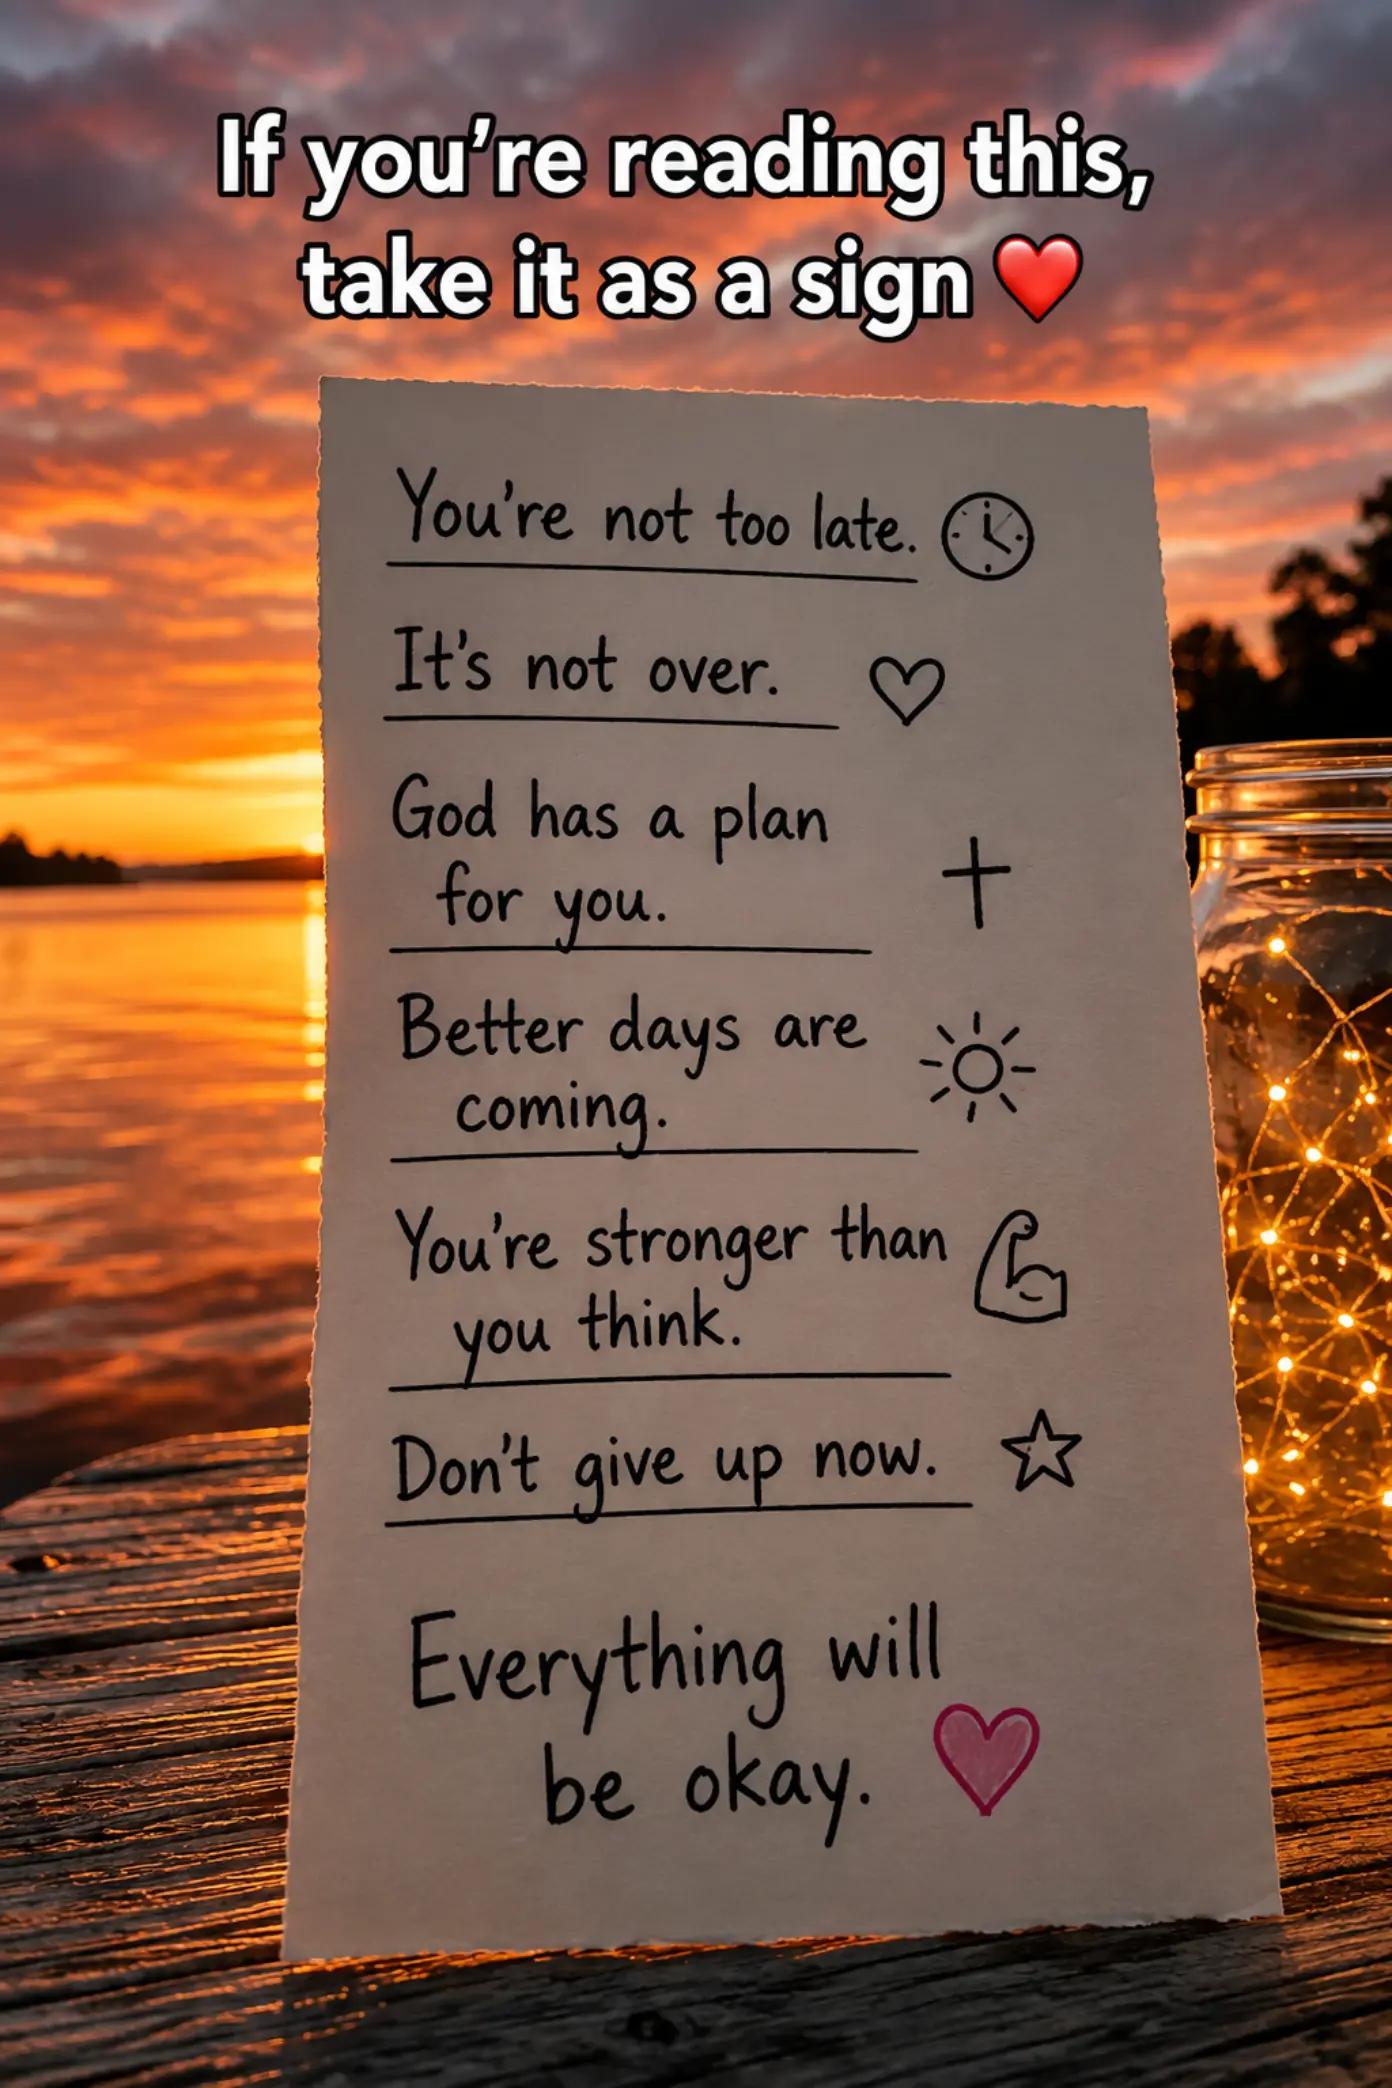 If you’re reading this,
take it as a sign ❤️
You're not too late.
It's not over.
God has a plan
for you.
Better days are
coming.
You're stronger than
you think.
Don't give up now.
Everything will
be okay.